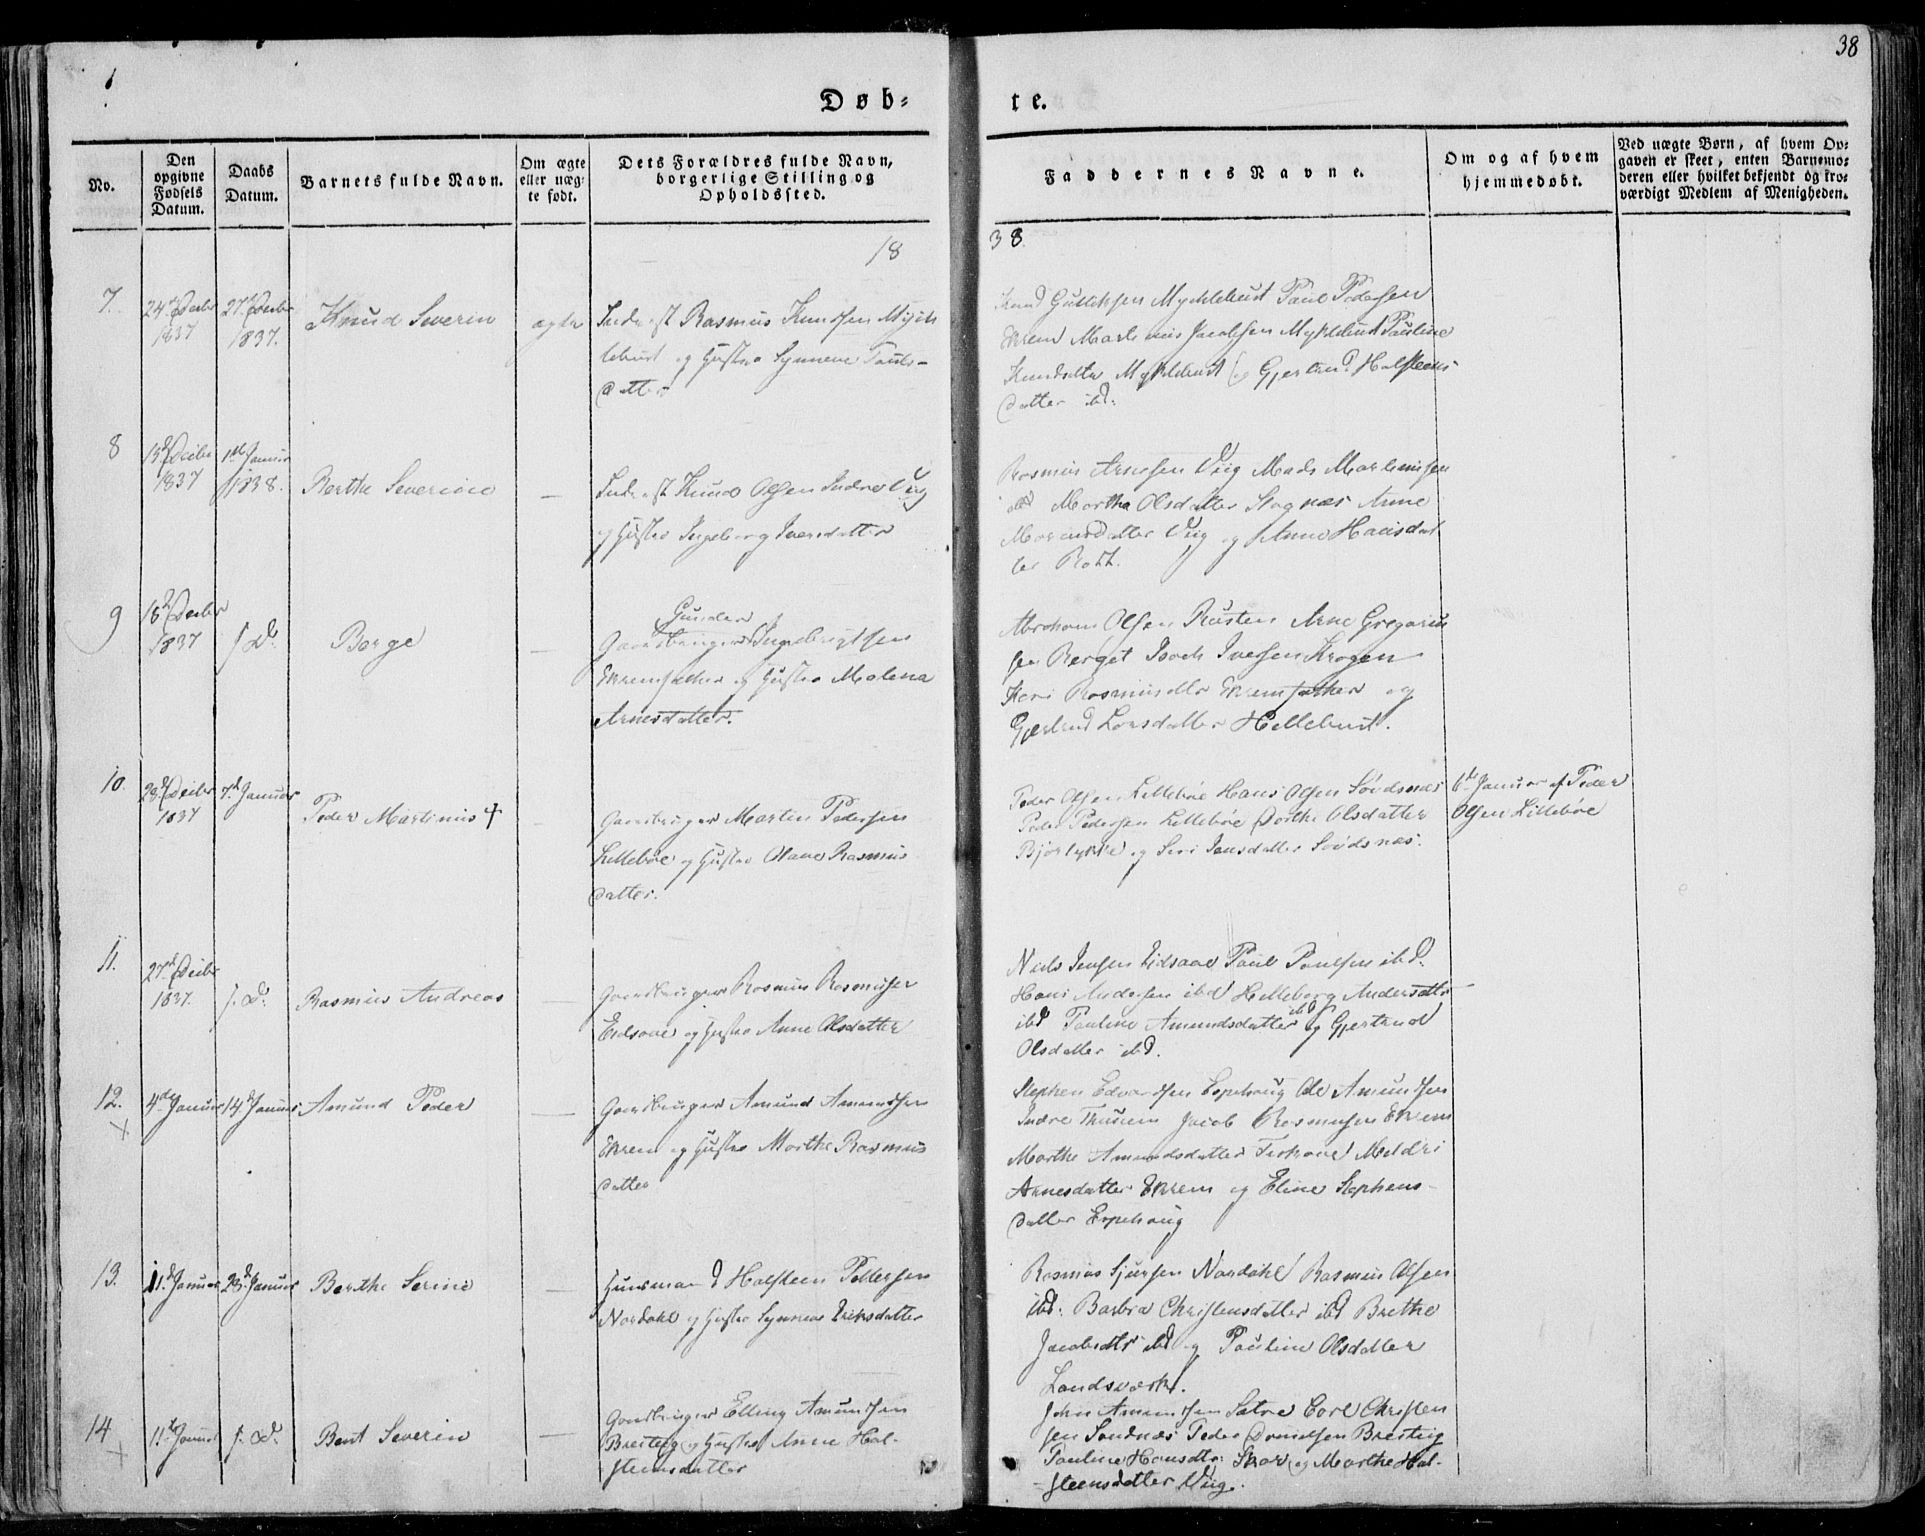 38
Døb-
te.
No.
Den opgivne Fødsels Datum.
Daabs Datum.
Barnets fulde Navn.
Om ægte eller uægte født.
Dets Forældres fulde Navn, borgerlige Stilling og Opholdssted.
Faddernes Navne.
Om og af hvem hjemmedøbt.
Ved uægte Børn, af hvem Opgaven er skeet, enten Barnemoderen eller hvilket bekjendt og troværdigt Medlem af Menigheden.
18
38
7.
24de Decbr 1837
27de Decbr 1837.
Knud Severin
ægte
Inderst Rasmus Knudsen Myk
lebust og Hustru Synneve Pauls-
datter
Knud Gulliksen Myklebust Paul Pedersen
Ekrem Martinus Jacobsen Myklebust Pauline
Knudsdtr Myklebust og Gjertrud Halsteens-
datter ibd:
8
1838.
Berthe Severine
—
Inderst Knud Olsen Indre Viig
og Hustru Ingeborg Iversdatter
Rasmus Arnesen Viig Mads Martinusen
ibd Marthe Olsdatter Anne
datter Viig og Anne Hansdat
ter
9
18de Decbr 1837
s. D.
Børge
—
Gunder
Gaardbruger Ingebrigtsen
Ekremsæther og Hustru Malena
Arnesdatter.
Abraham Olsen Rusten Arne Gregorius
sen Berget Isach Iversen Krogen
Kari Rasmusdtr Ekremsæther og
Gjertrud Larsdatter Hellebust.
10.
28de Decbr 1837
7de Januar
Peder Martinus +
Gaardbruger Martin Pedersen
Lillebøe og Hustru Olane Rasmus
datter.
Peder Olsen Lillebøe Hans Olsen Søvdsnæs
Peder Pedersen Lillebøe Dorthe Olsdatter
Bjørlykke og Siri Jensdatter Søvdsnæs.
6te Januar af Peder
Olsen Lillebøe
11.
27de Decbr 1837.
s. D.
Rasmus Andreas
—
Gaardbruger Rasmus Rasmusen
Eidsaae og Hustru Anne Olsdatter
Niels Jensen Eidsaae Paul Paulsen ibd.
Hans Andersen ibd Helleborg Andersdtr
ibd Pauline Amundsdatter ibd og Gjertrud
Olsdatter ibd.
12.
x
4de Januar
14de Januar
Amund Peder
—
Gaardbruger Amund Amundsen
Ekrem og Hustru Marthe Rasmus
datter
Stephen Edvardsen Espehoug Ole Amundsen
Indre Thusem Jacob Rasmusen Ekrem
Marthe Amundsdatter Fiskaae Meldri
Arnesdatter Ekrem og Eline Stephens-
datter Espehoug
13.
11de Januar
28de Januar
Berthe Serine
—
Huusmand Halsteen Pettersen
Nordahl og Hustru Synneve Eriksdatter
Rasmus Sjursen Nordahl Rasmus Olsen
ibd: Barbra Christensdatter ibd Brethe
Jacobsdtr ibd og Pauline Olsdatter
Landsværk.
14
x
11te Januar
s. D.
Bent Severin
—
Gaardbruger Elling Amundsen
Breiteig og Hustru Anne Hal-
steensdatter
John Amundsen Sætre Carl Christen
sen Sandnæs Peder Breiteig
Pauline Hansdtr: Skar og Marthe Hal-
steensdatter Viig.